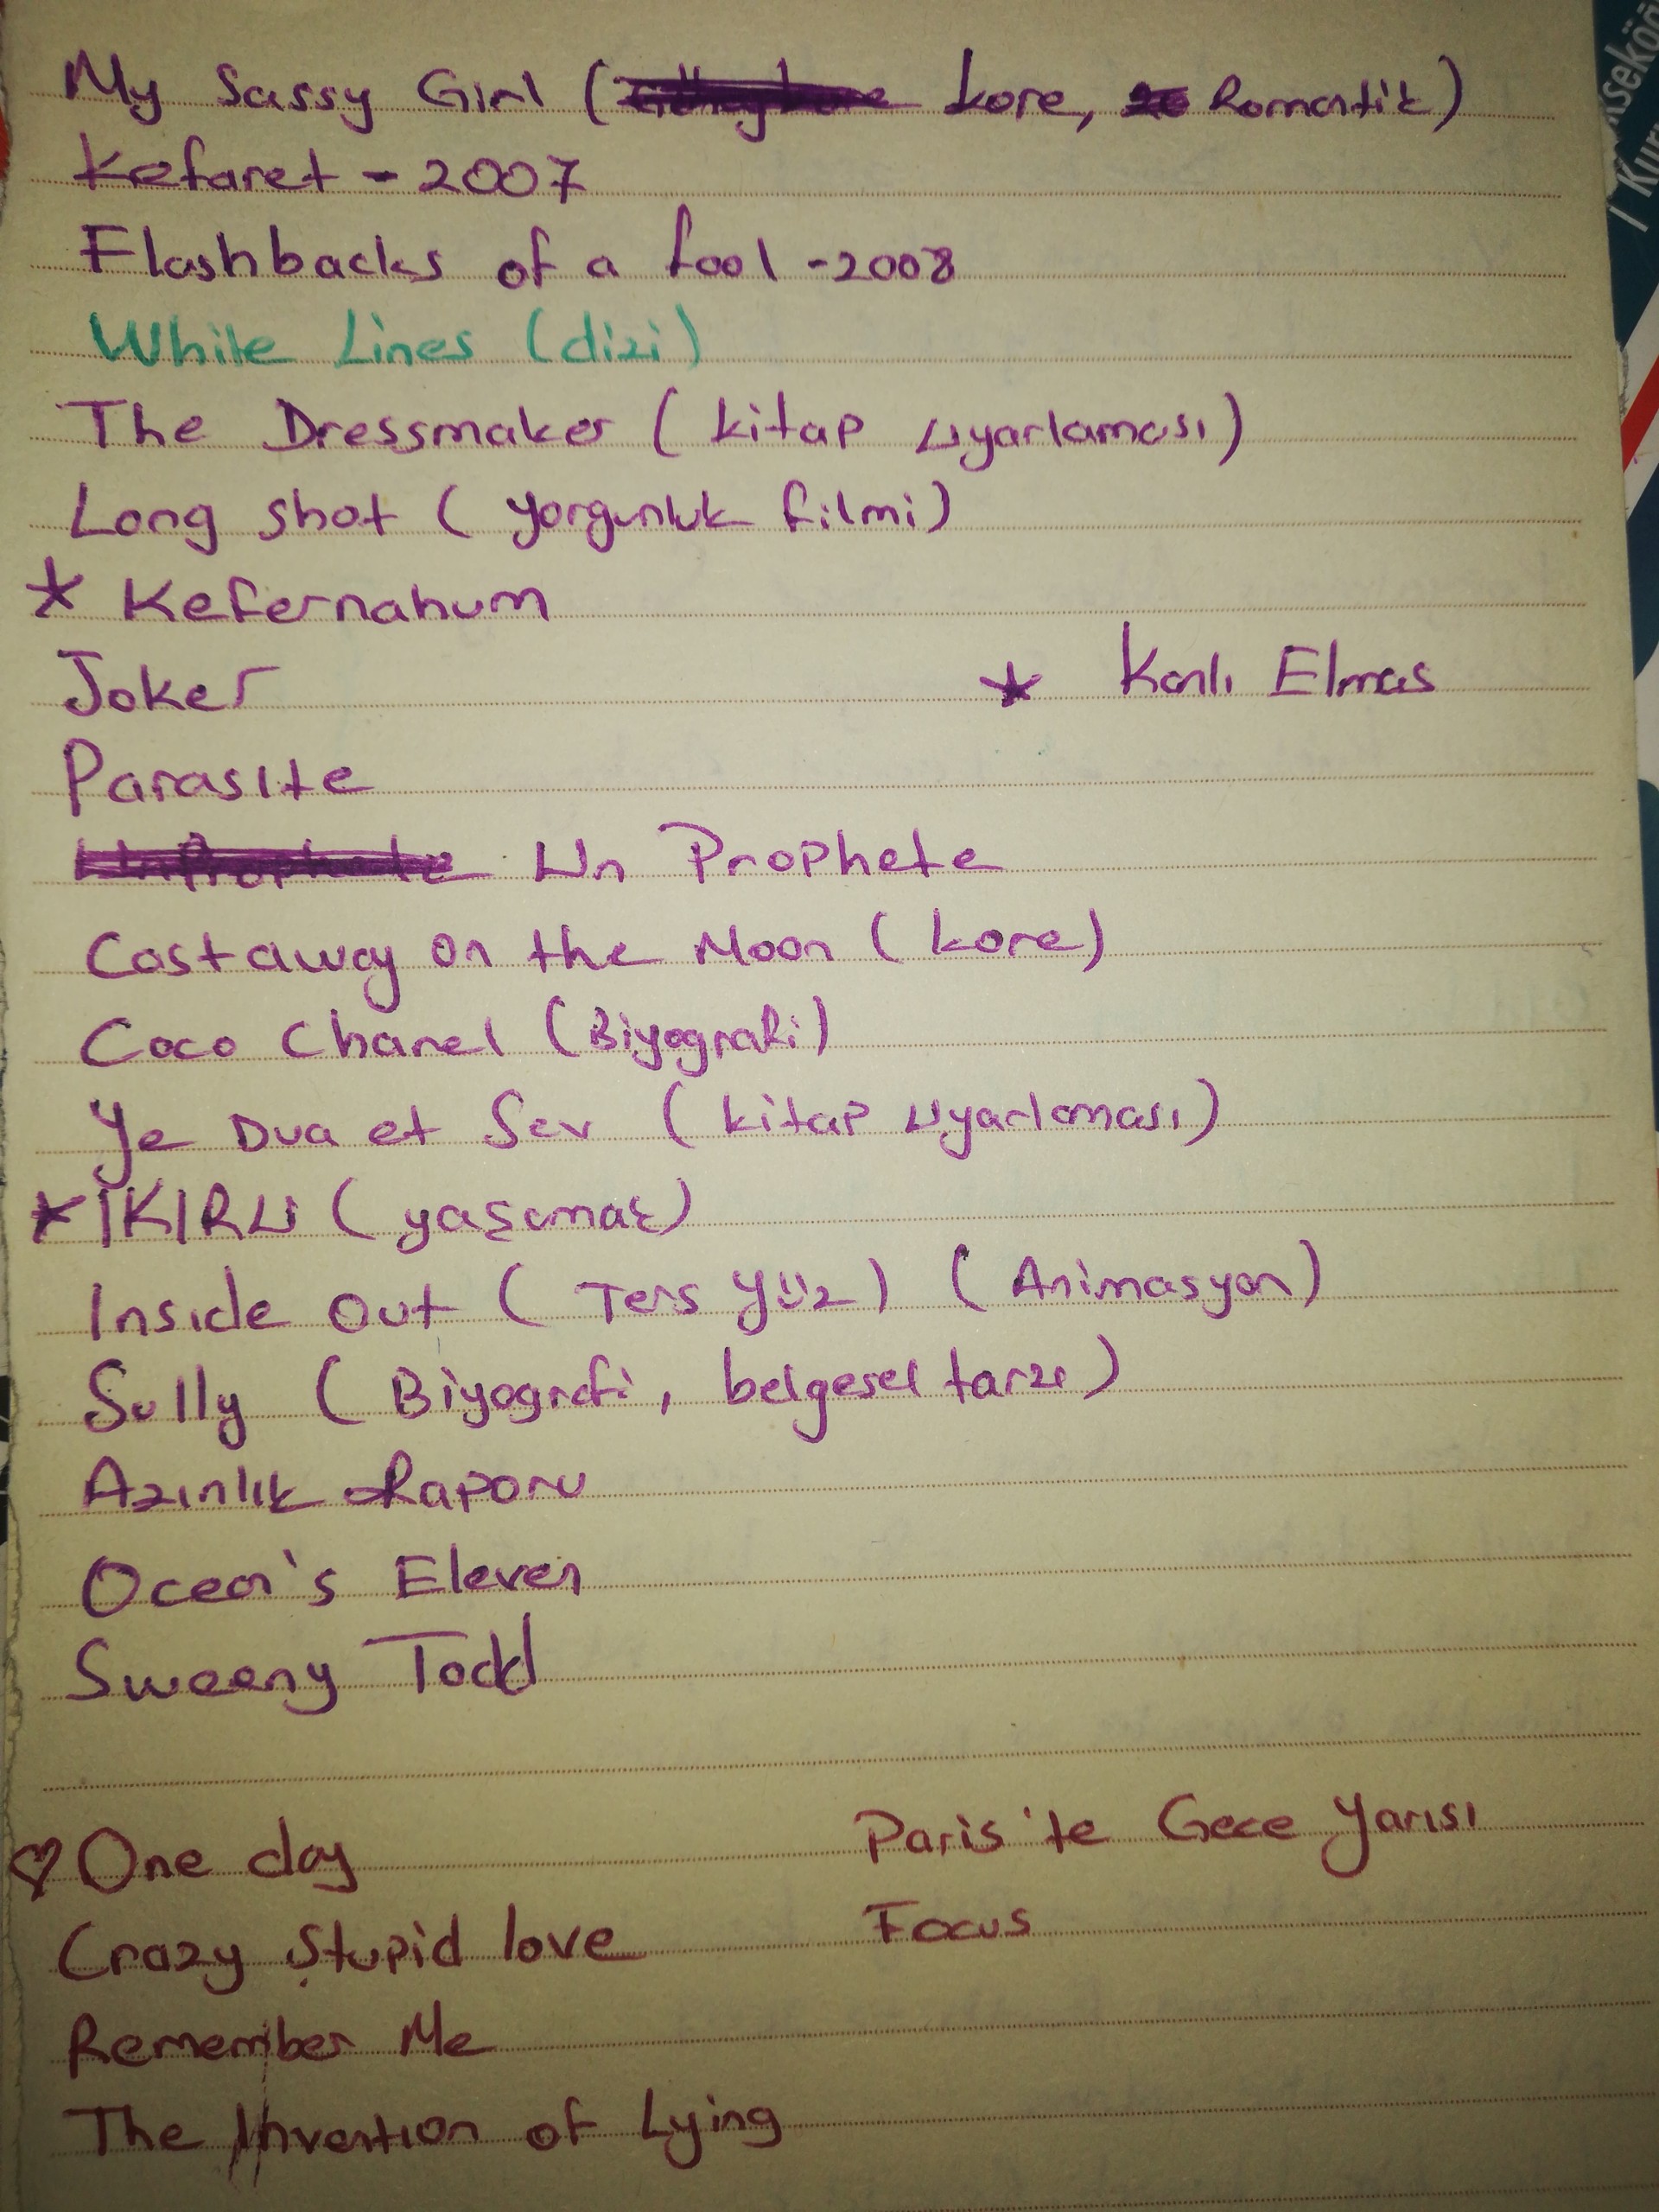 My Sassy Girl ( kore, Romantik)
Kefaret - 2007
Flashbacks of a fool -2008
White Lines (dizi)
The Dressmaker ( kitap uyarlaması)
Long shot ( yorgunluk filmi)
* Kefernahum
Joker
* Kanlı Elmas
Parasite
Un Prophete
Castaway on the Moon ( kore)
Coco Chanel (Biyografi)
Ye Dua et Sev ( kitap uyarlaması)
* IKIRU ( yaşamak)
Inside Out ( Ters Yüz) ( Animasyon)
Sully ( Biyografi, belgesel tarzı)
Azınlık Raporu
Ocean's Eleven
Sweeny Todd
♡ One day
Paris'te Gece Yarısı
Crazy Stupid love
Focus
Remember Me
The Invention of Lying